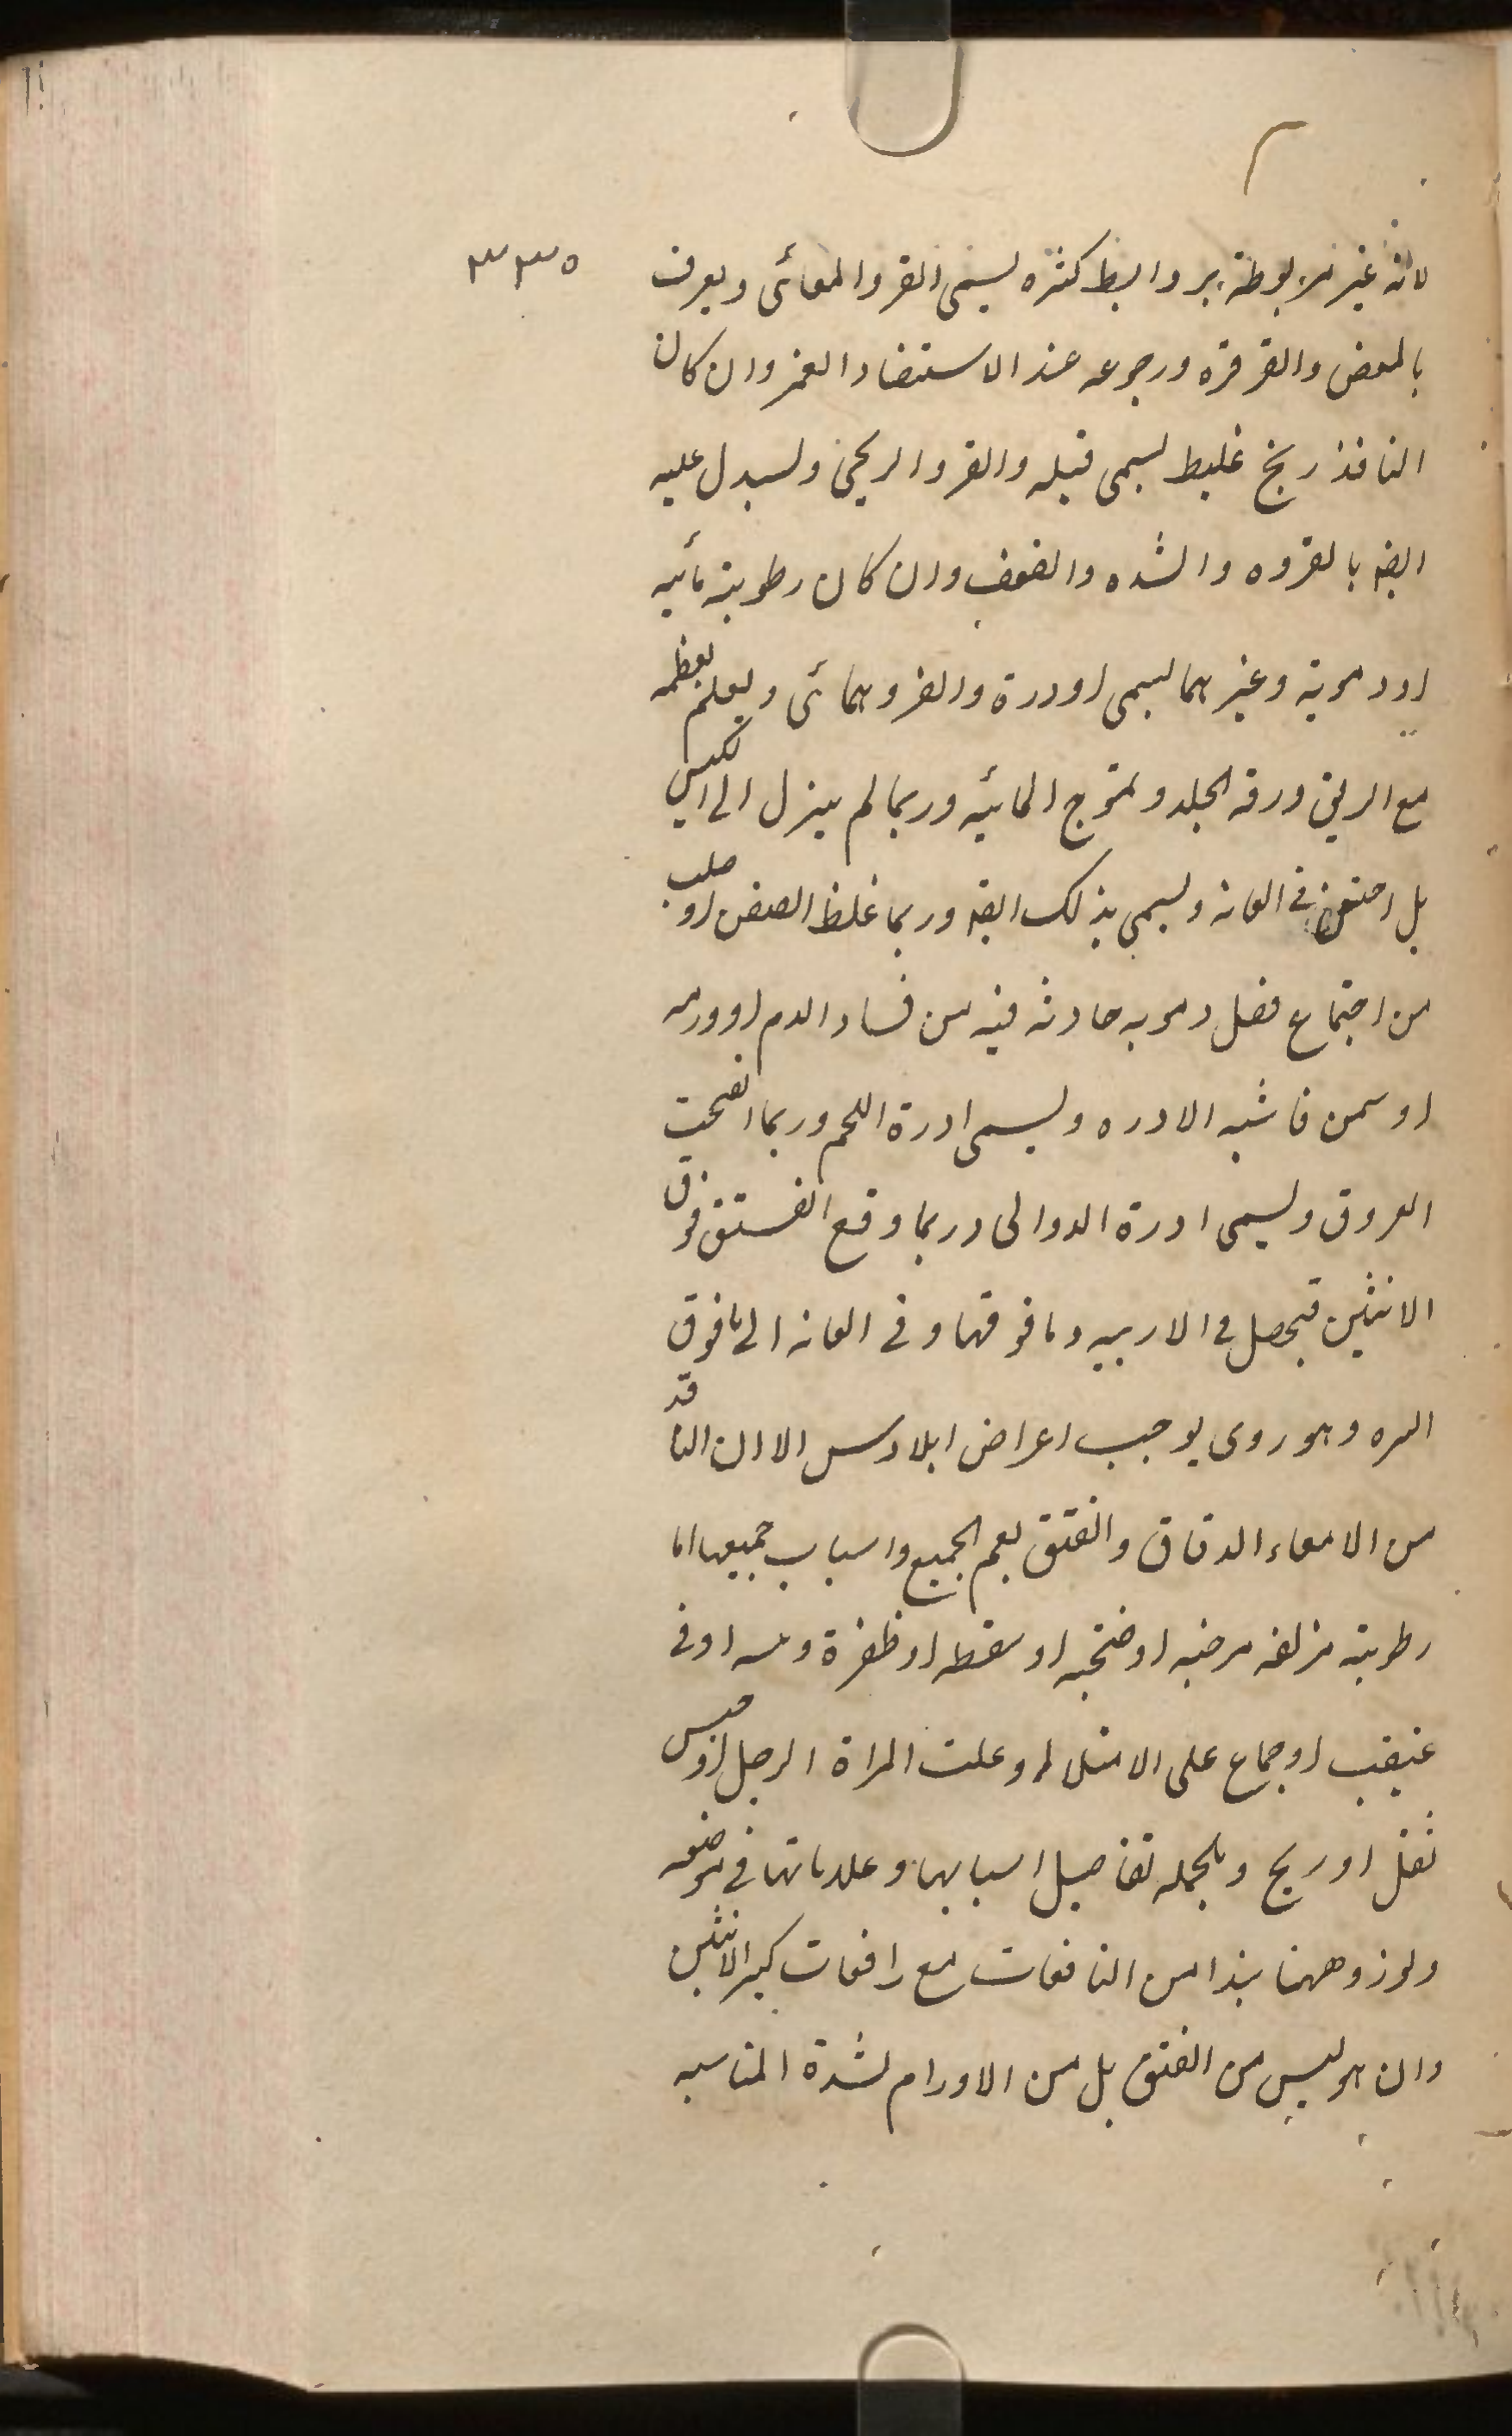 ٣٣٥
لانه غير مربوطة بروابط كثره يسمى القرو المعائى ويعرف
بالمغص والقرقره ورجوعه عند الاستضا والغمز وان كان
النافذ ريح غليط يسمى قيله والقرو الريحى وليدل عليه
ايضه بالقروه والشده والضعف وان كان رطوبته مائيه
او دموية وغيرهما يسمى اودرة والقرو همائى ويعلم بعظمه
مع البريق ورقه الجلد وتموج المائيه وربما لم ينزل الى الكيس
بل احتقن فى العانه ويسمى بذلك ايضه وربما غلظ الصفن او صلب
من اجتماع فضل دمويه حادثه فيه من فساد الدم او ورمه
او سمن فاشبه الادره ويسمى ادرة اللحم وربما انفتحت
العروق ويسمى ادرة الدوالى وربما وقع الفتق فوق
الانثيين فيحصل فى الاربيه وما فوقها وفى العانه الى ما فوق
السره وهو روى يوجب اعراض ايلاوس الا ان النافذ
من الامعاء الدقاق والفتق يعم الجميع واسباب جميعها اما
رطوبته مزلقه مرخيه او ضخبه او سقطه او ظفرة وثبه او قى
عنيف او جماع على الامتلا او علت المراة الرجل او حبس
ثفل او ريح وبالجمله تفاصيل اسبابها وعلاماتها فى موضعه
ولوزد ههنا نبذا من النافعات مع رافعات كبر الانثيين
وان هو ليس من الفتق بل من الاورام لشدة المناسبه